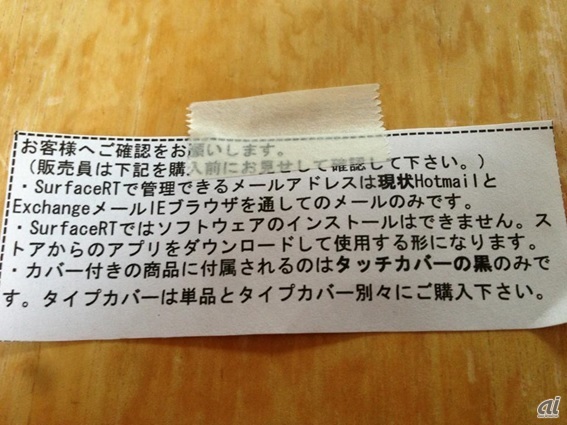 お客様へご確認をお願いします。
（販売員は下記を購入前にお見せして確認して下さい。）
・SurfaceRTで管理できるメールアドレスは現状Hotmailと
ExchangeメールIEブラウザを通してのメールのみです。
・SurfaceRTではソフトウェアのインストールはできません。ス
トアからのアプリをダウンロードして使用する形になります。
・カバー付きの商品に付属されるのはタッチカバーの黒のみで
す。タイプカバーは単品とタイプカバー別々にご購入下さい。
ai